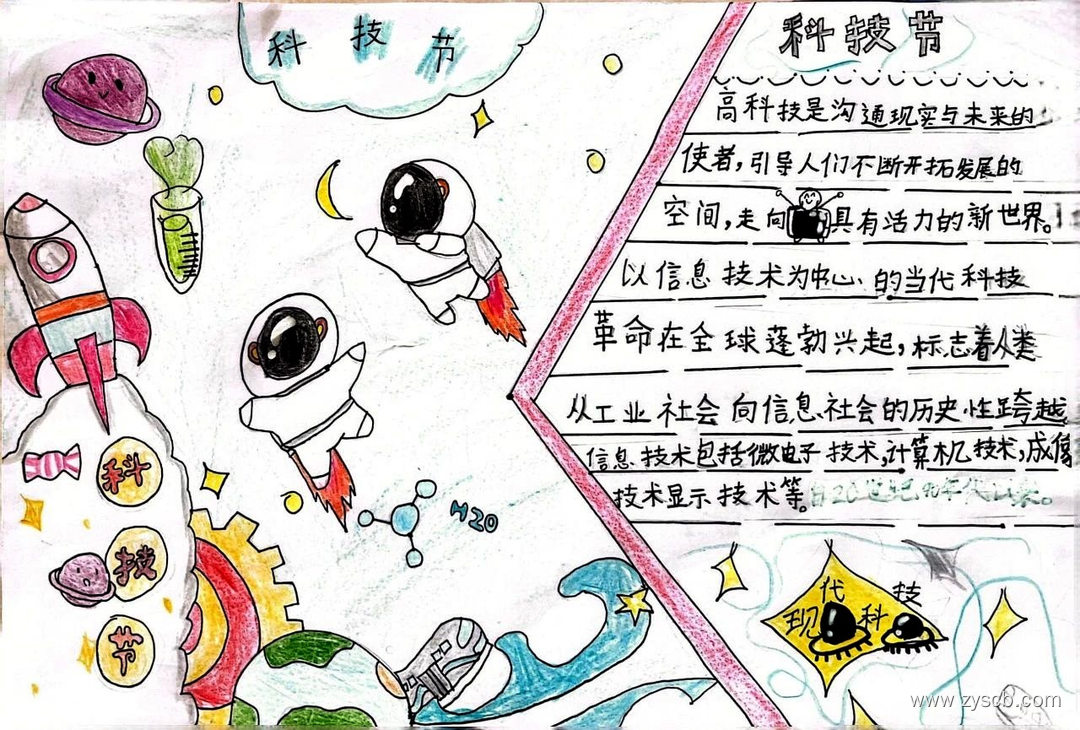 科技节
科技节
高科技是沟通现实与未来的
使者,引导人们不断开拓发展的
空间,走向具有活力的新世界。
以信息技术为中心的当代科技
革命在全球蓬勃兴起,标志着人类
从工业社会向信息社会的历史性跨越
信息技术包括微电子技术,计算机技术,成像
技术显示技术等。
科
技
节
H2O
现代科技
www.zyscb.com